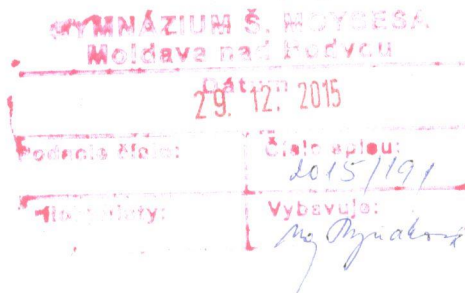 GYMNÁZIUM Š. MOYSESA
Moldava nad Bodvou
Dátum
29. 12. 2015
Podacie číslo:
Číslo spisu:
2015/191
Vybavuje: